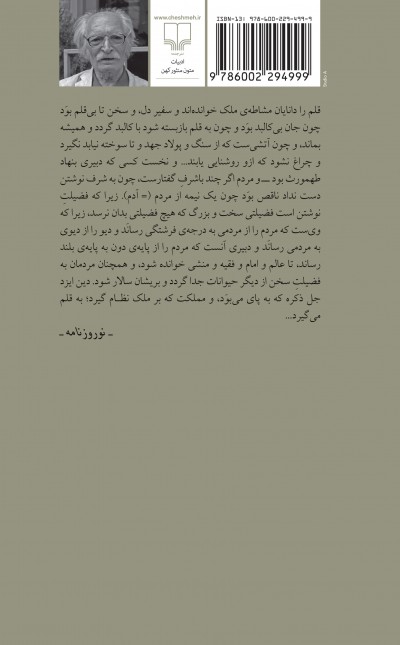 www.cheshmeh.ir
ادبیات
متون منثور کهن
ISBN-13: 978-600-229-499-9
9 786002 294999
قلم را دانایان مشاطه‌ی ملک خوانده‌اند و سفیر دل، و سخن تا بی‌قلم بوَد
چون جان بی‌کالبد بوَد و چون به قلم بازبسته شود با کالبد گردد و همیشه
بماند، و چون آتشی‌ست که از سنگ و پولاد جهد و تا سوخته نیابد نگیرد
و چراغ نشود که ازو روشنایی یابند... و نخست کسی که دبیری بنهاد
طهمورث بود ــ و مردم اگر چند باشرفِ گفتارست، چون به شرف نوشتن
دست نداد ناقص بوَد چون یک نیمه از مردم (= آدم). زیرا که فضیلتِ
نوشتن است فضیلتی سخت و بزرگ که هیچ فضیلتی بدان نرسد، زیرا که
وی‌ست که مردم را از مردمی به درجه‌ی فرشتگی رسانَد و دیو را از دیوی
به مردمی رسانَد و دبیری آنست که مردم را از پایه‌ی دون به پایه‌ی بلند
رساند، تا عالم و امام و فقیه و منشی خوانده شود، و همچنان مردمان به
فضیلتِ سخن از دیگر حیوانات جدا گردد و بریشان سالار شود. دین ایزد
جل ذکره که به پای می‌بوَد، و مملکت که بر ملک نظام گیرد؛ به قلم
می‌گیرد...
ــ نوروزنامه ــ